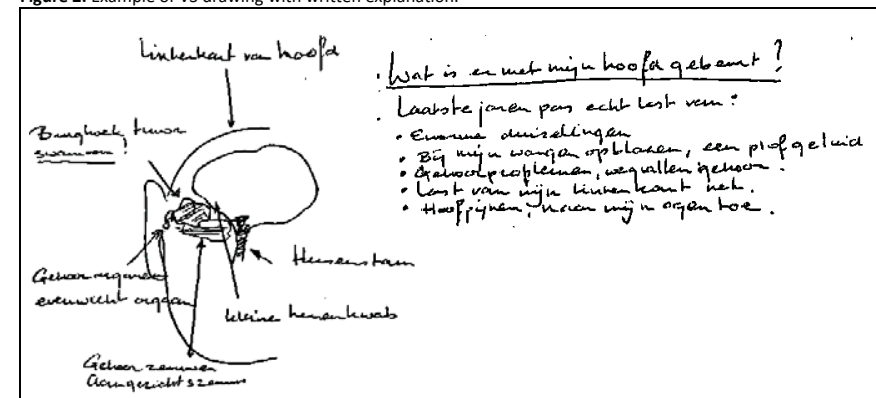 Figure 2. Example of VS drawing with written explanation.
Linkerkant van hoofd
Brughoek tumor
Gehoororgaan
evenwicht orgaan
Gehoor zenuwen
Aangezichtszenuw
kleine hersenkwab
Hersenstam
Wat is er met mijn hoofd gebeurt?
Laatste jaren pas echt last van:
• Enorme duizelingen
• Bij mijn wangen opblazen, een plof geluid
• Gehoorproblemen, wegvallen gehoor.
• Last van mijn linkerkant nek.
• Hoofdpijnen, naar mijn ogen toe.